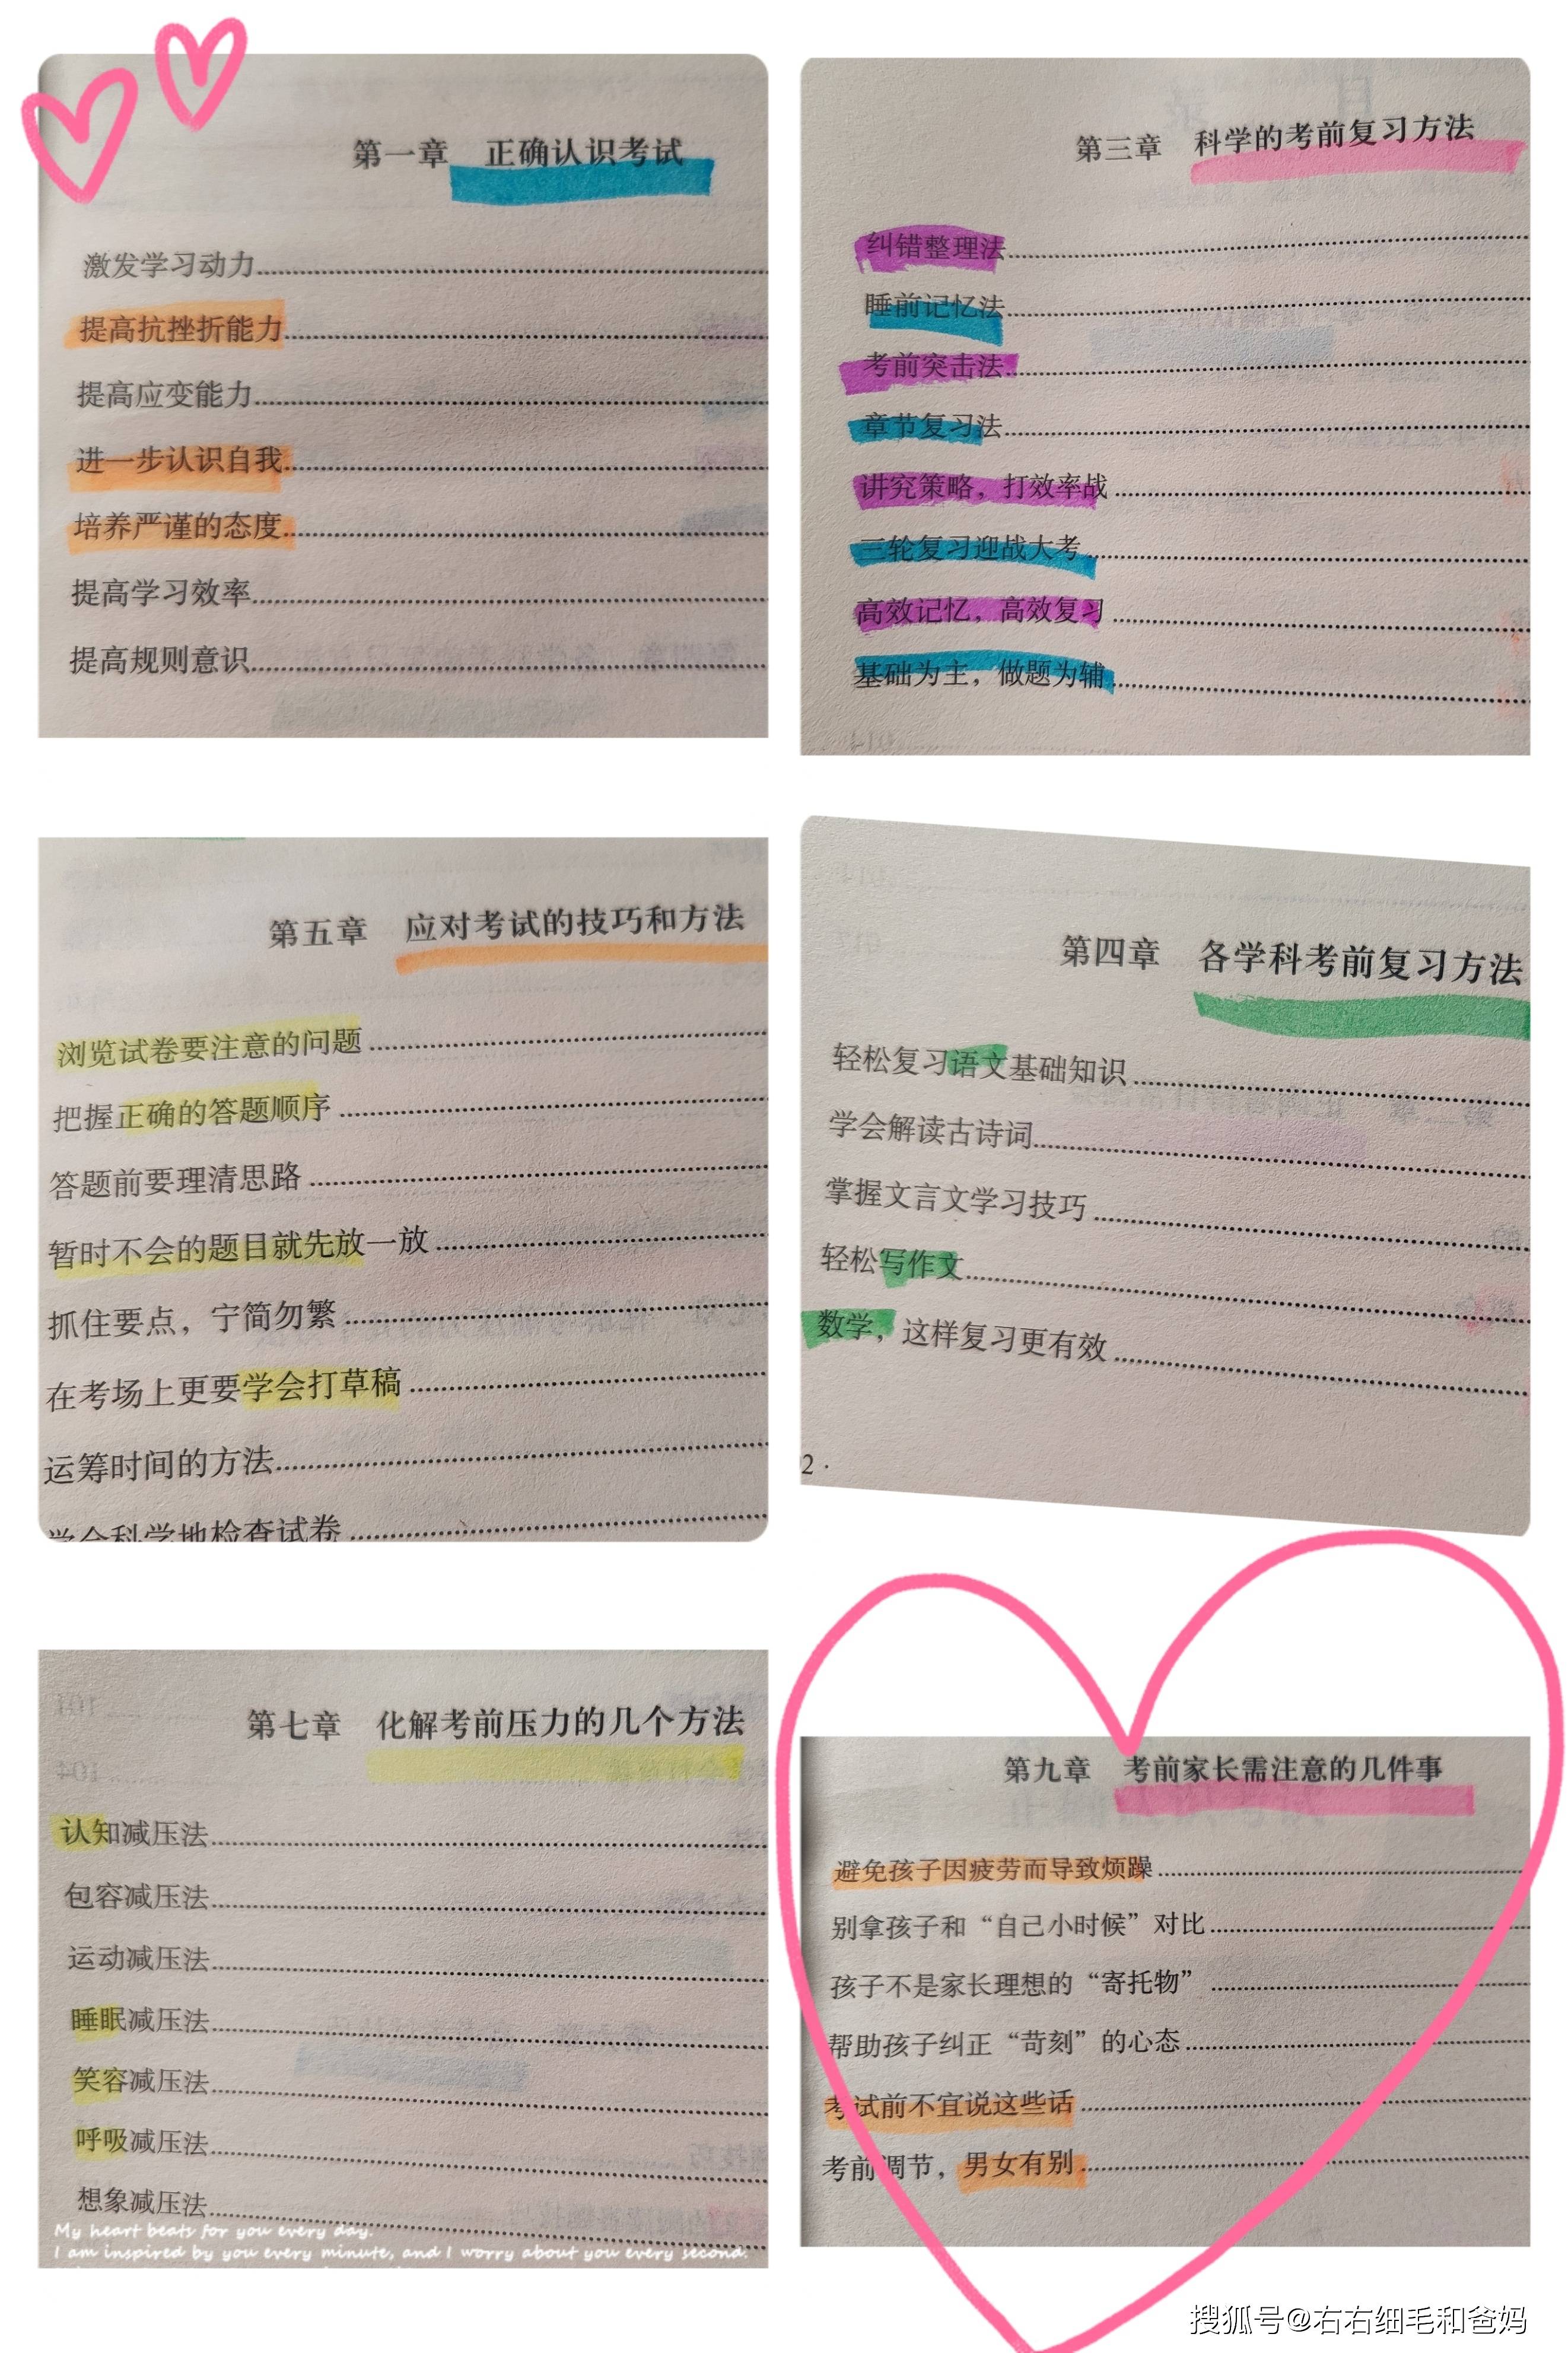 第一章 正确认识考试
激发学习动力
提高抗挫折能力
提高应变能力
进一步认识自我
培养严谨的态度
提高学习效率
提高规则意识
第三章 科学的考前复习方法
纠错整理法
睡前记忆法
考前突击法
章节复习法
讲究策略，打效率战
三轮复习迎战大考
高效记忆，高效复习
基础为主，做题为辅
第五章 应对考试的技巧和方法
浏览试卷要注意的问题
把握正确的答题顺序
答题前要理清思路
暂时不会的题目就先放一放
抓住要点，宁简勿繁
在考场上更要学会打草稿
运筹时间的方法
学会科学地检查试卷
第四章 各学科考前复习方法
轻松复习语文基础知识
学会解读古诗词
掌握文言文学习技巧
轻松写作文
数学，这样复习更有效
2 ·
第七章 化解考前压力的几个方法
认知减压法
包容减压法
运动减压法
睡眠减压法
笑容减压法
呼吸减压法
想象减压法
My heart beats for you every day.
I am inspired by you every minute, and I worry about you every second.
第九章 考前家长需注意的几件事
避免孩子因疲劳而导致烦躁
别拿孩子和“自己小时候”对比
孩子不是家长理想的“寄托物”
帮助孩子纠正“苛刻”的心态
考试前不宜说这些话
考前调节，男女有别
搜狐号@右右细毛和爸妈